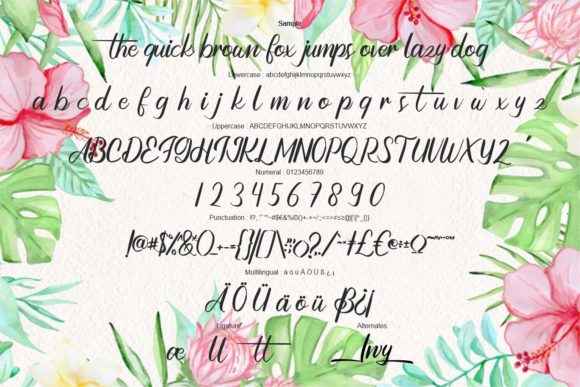 Sample
the quick brown fox jumps over lazy dog
Lowercase : abcdefghijklmnopqrstuvwxyz
a b c d e f g h i j k l m n o p q r s t u v w x y z
Uppercase : ABCDEFGHIJKLMNOPQRSTUVWXYZ
ABCDEFGHIJKLMNOPQRSTUVWXYZ
Numeral : 0123456789
1 2 3 4 5 6 7 8 9 0
Punctuation :
Multilingual : ä ö ü Ä Ö Ü ß ¿ ¡
Ä Ö Ü ä ö ü ß ¿ ¡
Ligature Alternates
æ ll tt Ivy